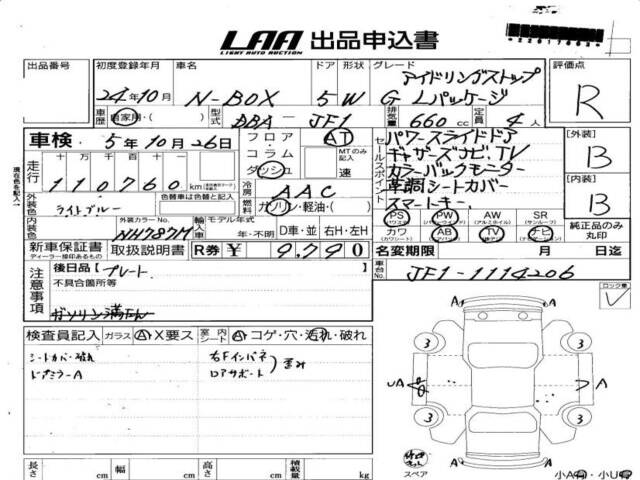 LAA 出品申込書
LIGHT AUTO AUCTION
出品番号 初度登録年月 車名 ドア 形状 グレード 評価点
24年10月 N-BOX 5 W G Lパッケージ アイドリングストップ R
車歴 自家用 型式 DBA - JF1 排気量 660cc 定員 4人
車検 5年10月26日 フロア・コラム・ダッシュ AT MTのみ記入 速
セールスポイント
パワースライドドア
ギャザーズナビ.TV
カラーバックモニター
革調シートカバー
スマートキー
【外装】 B
【内装】 B
現在色を記入
走行 十万 千百十
110760 km
冷房 AAC
燃料 ガソリン・軽油・( )
外装色 ライトブルー 色替車は色替と記入
外装カラーNo. NH787M
輸入車 モデル年式 年・不明 D車・並 右H・左H
PS PW AW SR
カワ AB TV ナビ
純正品のみ丸印
新車保証書 取扱説明書 R券 ¥ 9,790
ディーラー印あるもの
名変期限 月 日迄
車台No. JF1-1114206
注意事項
後日品 プレート
不具合箇所等
ガソリン満たん
ロック車
検査員記入 ガラス A・X要ス 室内 シート A・コゲ・穴・汚れ・破れ
シートカバー破れ
ドアミラーA
右Fインパネ
ロアサポート
歪み
A A
3 3
UA A
3 3
A A
スペア
小A ・小U
長さ cm 幅 cm 高さ cm 積載量 kg